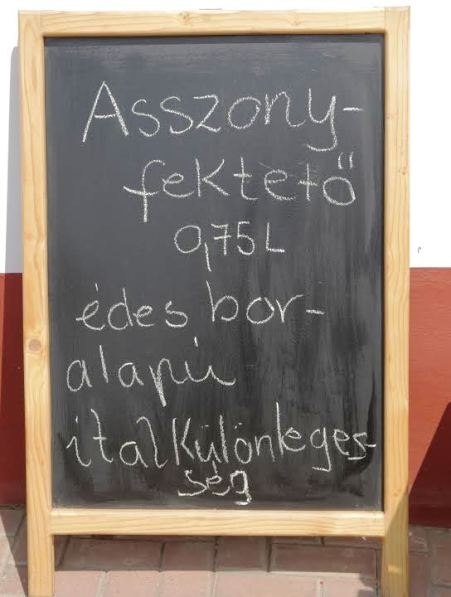 Asszony-
fektető
0,75L
édes bor-
alapú
italkülönleges-
ség